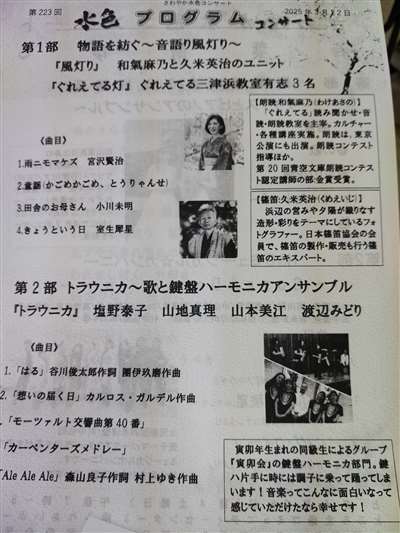 さわやか水色コンサート
第223回
水色 プログラム コンサート
2025年3月12日
第1部 物語を紡ぐ～音語り風灯り～
『風灯り』 和氣麻乃と久米英治のユニット
『ぐれえてる灯』ぐれえてる三津浜教室有志3名
【朗読:和氣麻乃(わけあさの)】
「ぐれえてる」読み聞かせ・音
読・朗読教室を主宰。カルチャー
・各種講座実施。朗読は、東京
公演にも出演。朗読コンテスト
指導ほか。
第20回青空文庫朗読コンテス
ト認定講師の部:金賞受賞。
《曲目》
1.雨ニモマケズ 宮沢賢治
2.童謡(かごめかごめ、とうりゃんせ)
3.田舎のお母さん 小川未明
4.きょうという日 室生犀星
【篠笛:久米英治(くめえいじ)】
浜辺の営みや夕陽が織りなす
造形・彩りをテーマにしているフォ
トグラファー。日本篠笛協会の会
員で、篠笛の製作・販売も行う篠
笛のエキスパート。
第2部 トラウニカ～歌と鍵盤ハーモニカアンサンブル
『トラウニカ』 塩野泰子 山地真理 山本美江 渡辺みどり
《曲目》
1.「はる」谷川俊太郎作詞 團伊玖磨作曲
2.「想いの届く日」カルロス・ガルデル作曲
「モーツァルト交響曲第40番」
「カーペンターズメドレー」
「Ale Ale Ale」森山良子作詞 村上ゆき作曲
寅卯年生まれの同級生によるグループ
『寅卯会』の鍵盤ハーモニカ部門。鍵
ハ片手に時には調子に乗って踊ってしま
います！音楽ってこんなに面白いなって
感じていただけたなら幸せです！